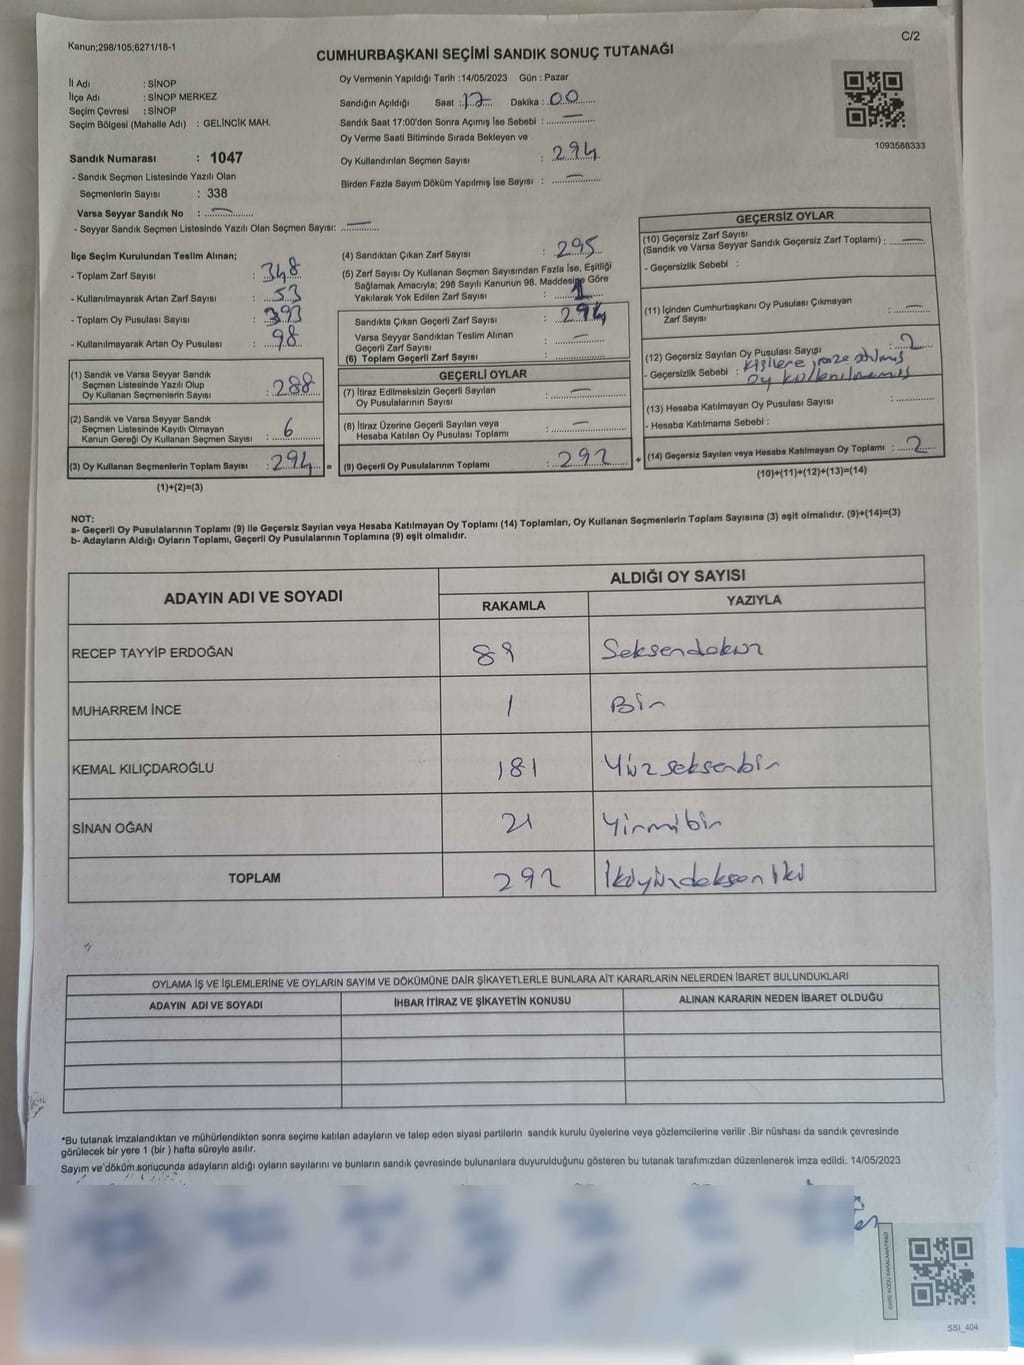 Kanun;298/105;6271/18-1
C/2
CUMHURBAŞKANI SEÇİMİ SANDIK SONUÇ TUTANAĞI
İl Adı : SİNOP
İlçe Adı : SİNOP MERKEZ
Seçim Çevresi : SİNOP
Seçim Bölgesi (Mahalle Adı) : GELİNCİK MAH.
Sandık Numarası : 1047
- Sandık Seçmen Listesinde Yazılı Olan
Seçmenlerin Sayısı : 338
Varsa Seyyar Sandık No : —
- Seyyar Sandık Seçmen Listesinde Yazılı Olan Seçmen Sayısı: —
Oy Vermenin Yapıldığı Tarih :14/05/2023 Gün : Pazar
Sandığın Açıldığı Saat : 17 Dakika : 00
Sandık Saat 17:00'den Sonra Açımış İse Sebebi : —
Oy Verme Saati Bitiminde Sırada Bekleyen ve
Oy Kullandırılan Seçmen Sayısı : 294
Birden Fazla Sayım Döküm Yapılmış İse Sayısı : —
1093588333
İlçe Seçim Kurulundan Teslim Alınan;
- Toplam Zarf Sayısı : 348
- Kullanılmayarak Artan Zarf Sayısı : 53
- Toplam Oy Pusulası Sayısı : 393
- Kullanılmayarak Artan Oy Pusulası : 98
(1) Sandık ve Varsa Seyyar Sandık
Seçmen Listesinde Yazılı Olup
Oy Kullanan Seçmenlerin Sayısı : 288
(2) Sandık ve Varsa Seyyar Sandık
Seçmen Listesinde Kayıtlı Olmayan
Kanun Gereği Oy Kullanan Seçmen Sayısı : 6
(3) Oy Kullanan Seçmenlerin Toplam Sayısı : 294 =
(1)+(2)=(3)
(4) Sandıktan Çıkan Zarf Sayısı : 295
(5) Zarf Sayısı Oy Kullanan Seçmen Sayısından Fazla İse, Eşitliği
Sağlamak Amacıyla; 298 Sayılı Kanunun 98. Maddesine Göre
Yakılarak Yok Edilen Zarf Sayısı : 1
Sandıkta Çıkan Geçerli Zarf Sayısı : 294
Varsa Seyyar Sandıktan Teslim Alınan
Geçerli Zarf Sayısı : —
(6) Toplam Geçerli Zarf Sayısı :
GEÇERLİ OYLAR
(7) İtiraz Edilmeksizin Geçerli Sayılan
Oy Pusulalarının Sayısı : —
(8) İtiraz Üzerine Geçerli Sayılan veya
Hesaba Katılan Oy Pusulası Toplamı : —
(9) Geçerli Oy Pusulalarının Toplamı : 292 +
GEÇERSİZ OYLAR
(10) Geçersiz Zarf Sayısı
(Sandık ve Varsa Seyyar Sandık Geçersiz Zarf Toplamı) : —
- Geçersizlik Sebebi :
(11) İçinden Cumhurbaşkanı Oy Pusulası Çıkmayan
Zarf Sayısı : —
(12) Geçersiz Sayılan Oy Pusulası Sayısı : 2
- Geçersizlik Sebebi : kişilere imza atılmış
oy kullanılmamış
(13) Hesaba Katılmayan Oy Pusulası Sayısı :
- Hesaba Katılmama Sebebi :
(14) Geçersiz Sayılan veya Hesaba Katılmayan Oy Toplamı : 2
(10)+(11)+(12)+(13)=(14)
NOT:
a- Geçerli Oy Pusulalarının Toplamı (9) ile Geçersiz Sayılan veya Hesaba Katılmayan Oy Toplamı (14) Toplamları, Oy Kullanan Seçmenlerin Toplam Sayısına (3) eşit olmalıdır. (9)+(14)=(3)
b- Adayların Aldığı Oyların Toplamı, Geçerli Oy Pusulalarının Toplamına (9) eşit olmalıdır.
ADAYIN ADI VE SOYADI ALDIĞI OY SAYISI
RAKAMLA YAZIYLA
RECEP TAYYİP ERDOĞAN 89 Seksendokuz
MUHARREM İNCE 1 Bir
KEMAL KILIÇDAROĞLU 181 Yüzseksenbir
SİNAN OĞAN 21 Yirmibir
TOPLAM 292 İkiyüzdoksen iki
OYLAMA İŞ VE İŞLEMLERİNE VE OYLARIN SAYIM VE DÖKÜMÜNE DAİR ŞİKAYETLERLE BUNLARA AİT KARARLARIN NELERDEN İBARET BULUNDUKLARI
ADAYIN ADI VE SOYADI İHBAR İTİRAZ VE ŞİKAYETİN KONUSU ALINAN KARARIN NEDEN İBARET OLDUĞU
*Bu tutanak imzalandıktan ve mühürlendikten sonra seçime katılan adayların ve talep eden siyasi partilerin sandık kurulu üyelerine veya gözlemcilerine verilir .Bir nüshası da sandık çevresinde
görülecek bir yere 1 (bir ) hafta süreyle asılır.
Sayım ve döküm sonucunda adayların aldığı oyların sayılarını ve bunların sandık çevresinde bulunanlara duyurulduğunu gösteren bu tutanak tarafımızdan düzenlenerek imza edildi. 14/05/2023
KARE KODU KARALAMAYINIZ!
SSI_404